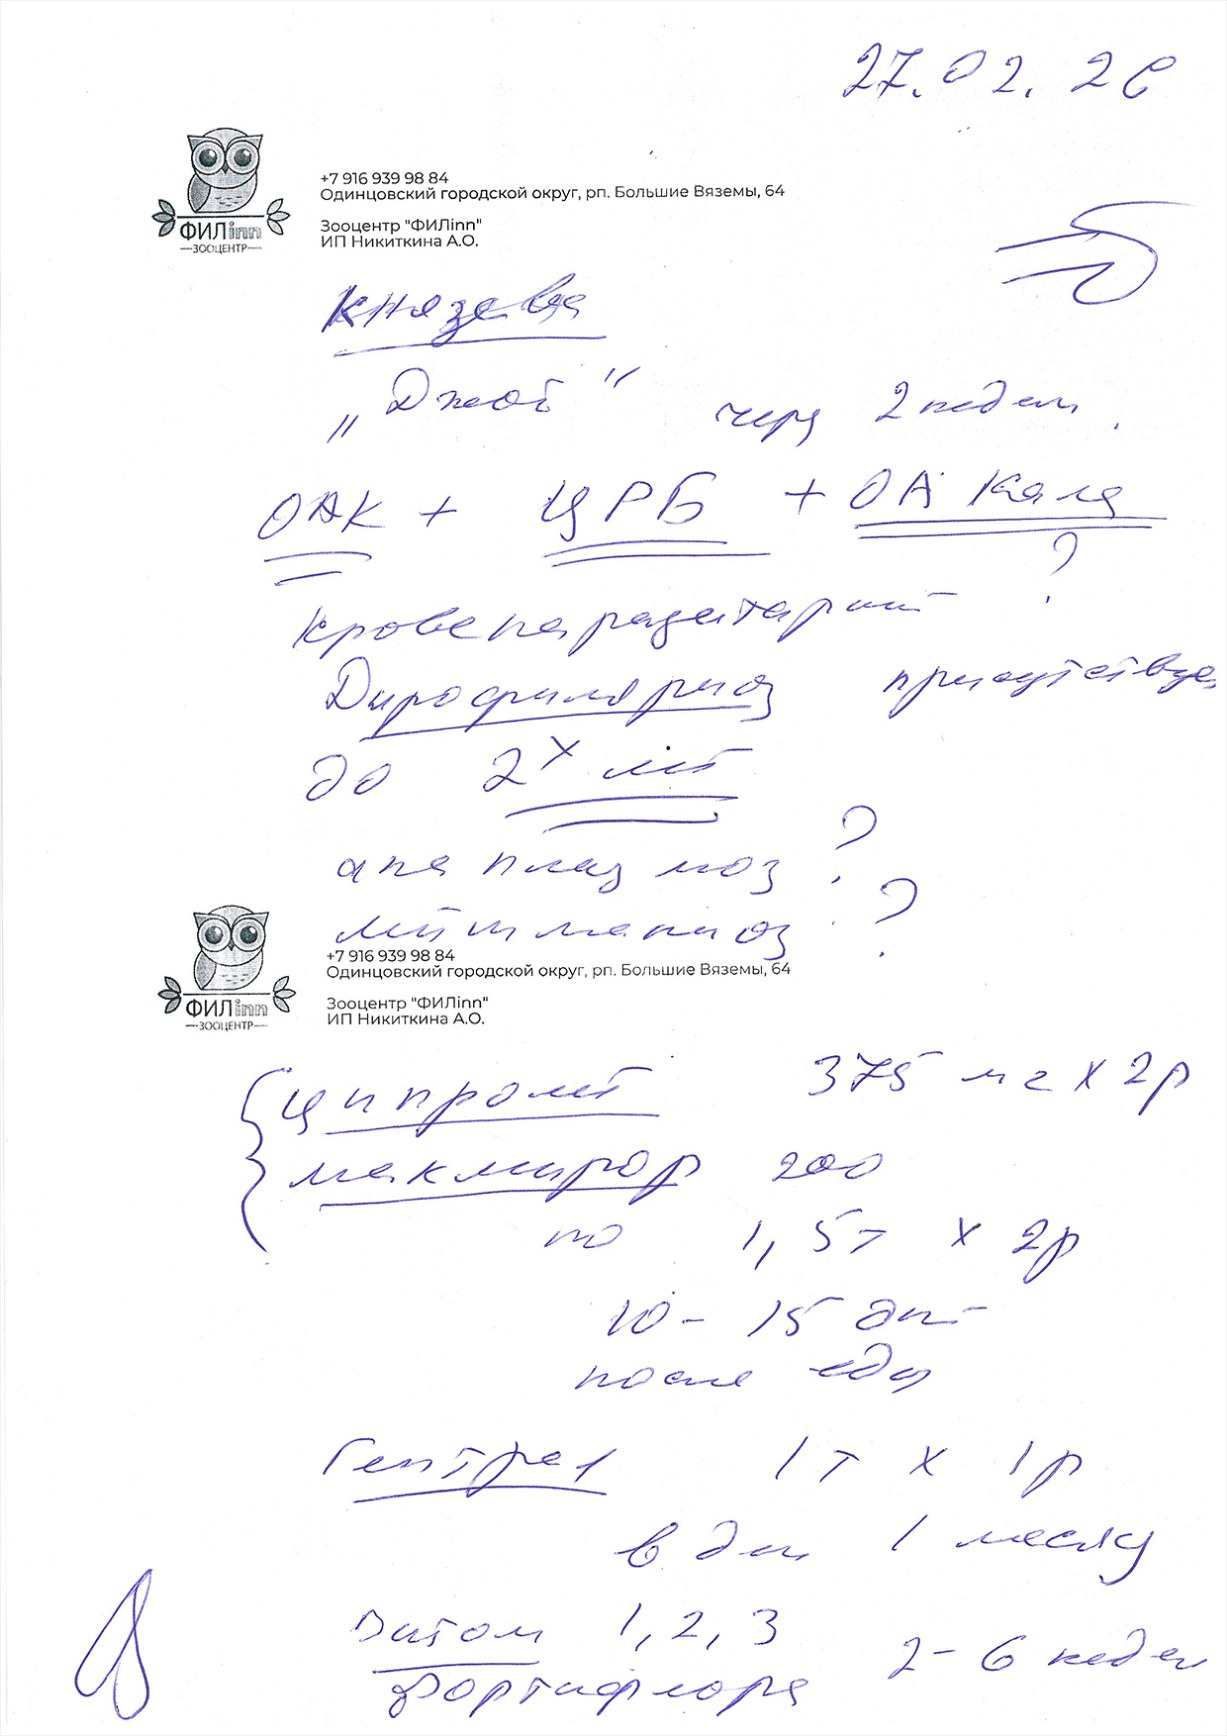 27.02.26
+7 916 939 98 84
Одинцовский городской округ, рп. Большие Вяземы, 64
Зооцентр "ФИЛinn"
ИП Никиткина А.О.
ФИЛinn
—ЗООЦЕНТР—
Князева
„Джой" через 2 недели.
ОАК + ЦРБ + ОА кала
Кровепаразитарный ?
Дирофиляриоз присутствует
до 2х лет
анаплазмоз ?
лейшманиоз ?
+7 916 939 98 84
Одинцовский городской округ, рп. Большие Вяземы, 64
Зооцентр "ФИЛinn"
ИП Никиткина А.О.
ФИЛinn
—ЗООЦЕНТР—
Ципролет 375 мг х 2р
макмирор 200
по 1,5т х 2р
10 - 15 дней
после еды
Гептрал 1т х 1р
в день 1 месяц
1, 2, 3
Фортифлора 2-6 недель